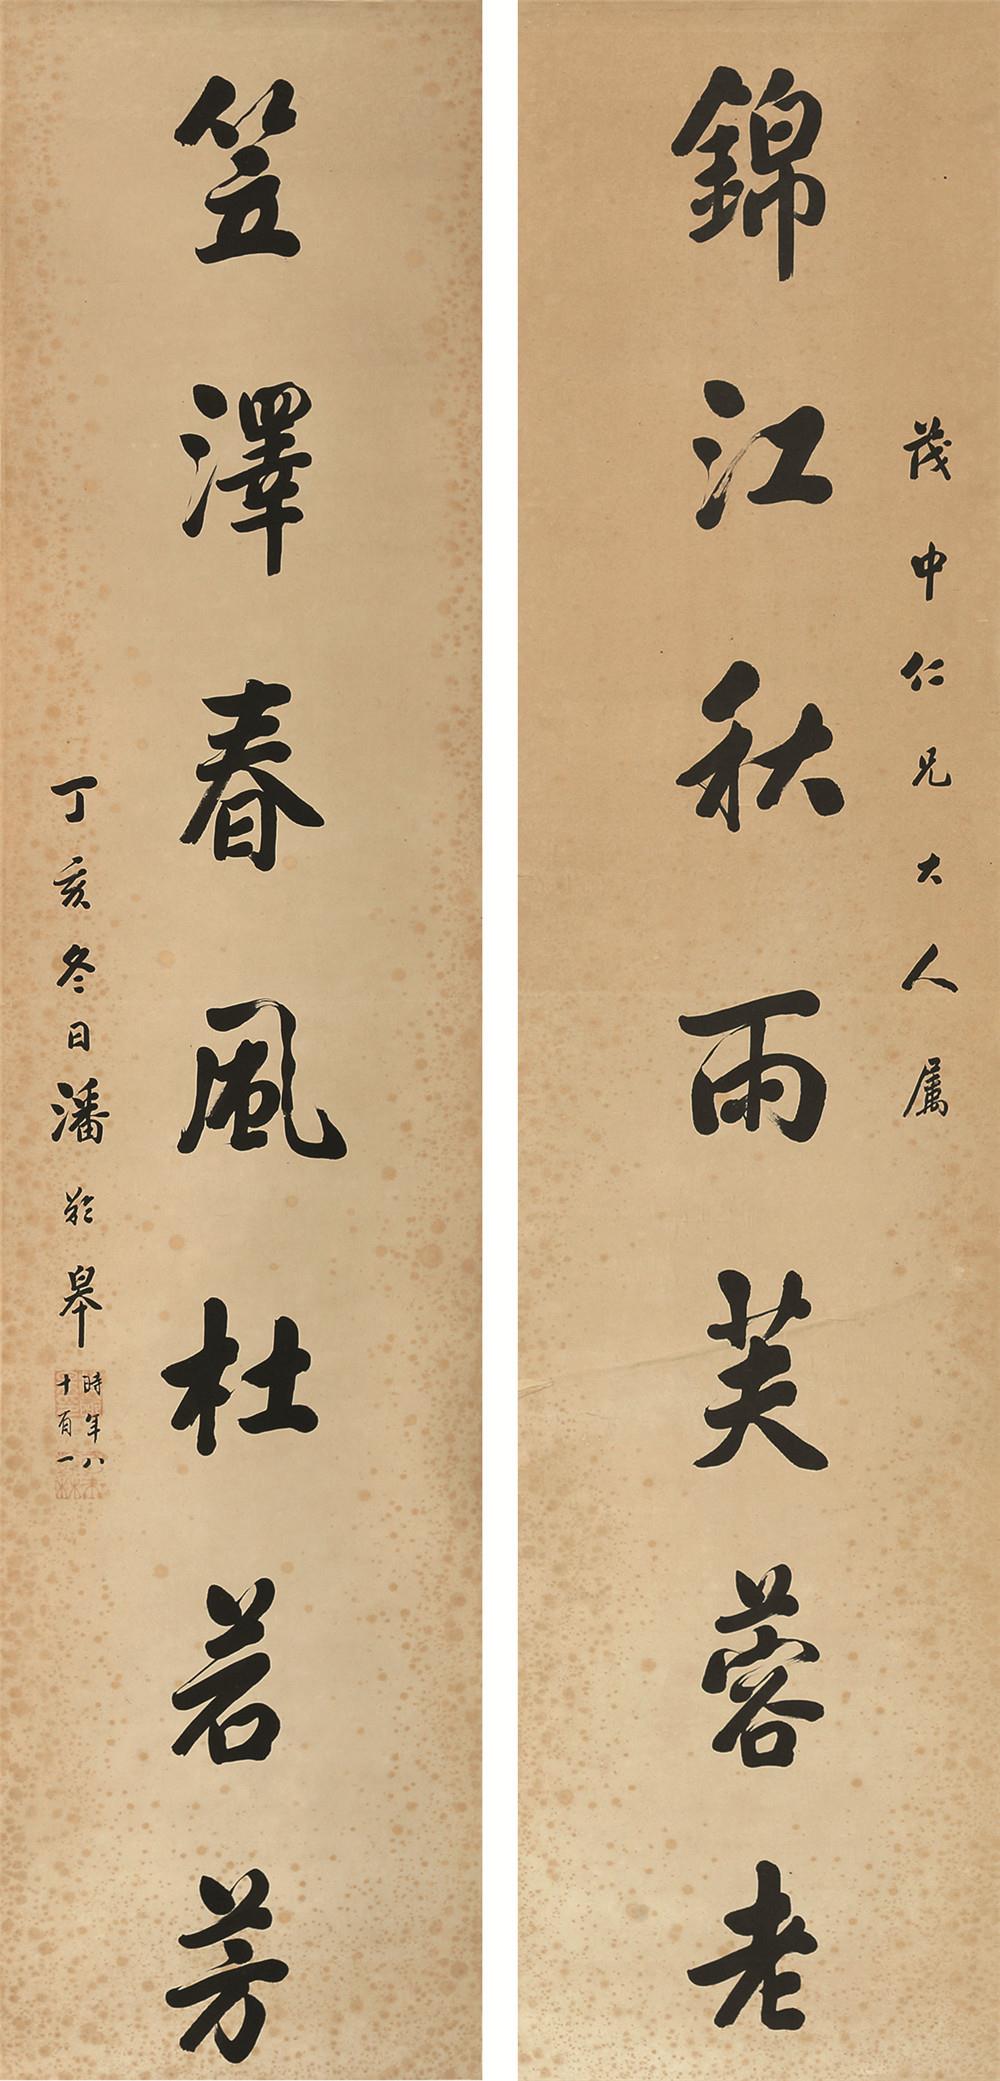 茂中仁兄大人属
錦江秋雨芙蓉老
笠澤春風杜若芳
丁亥冬日潘齡皋
時年八
十有一